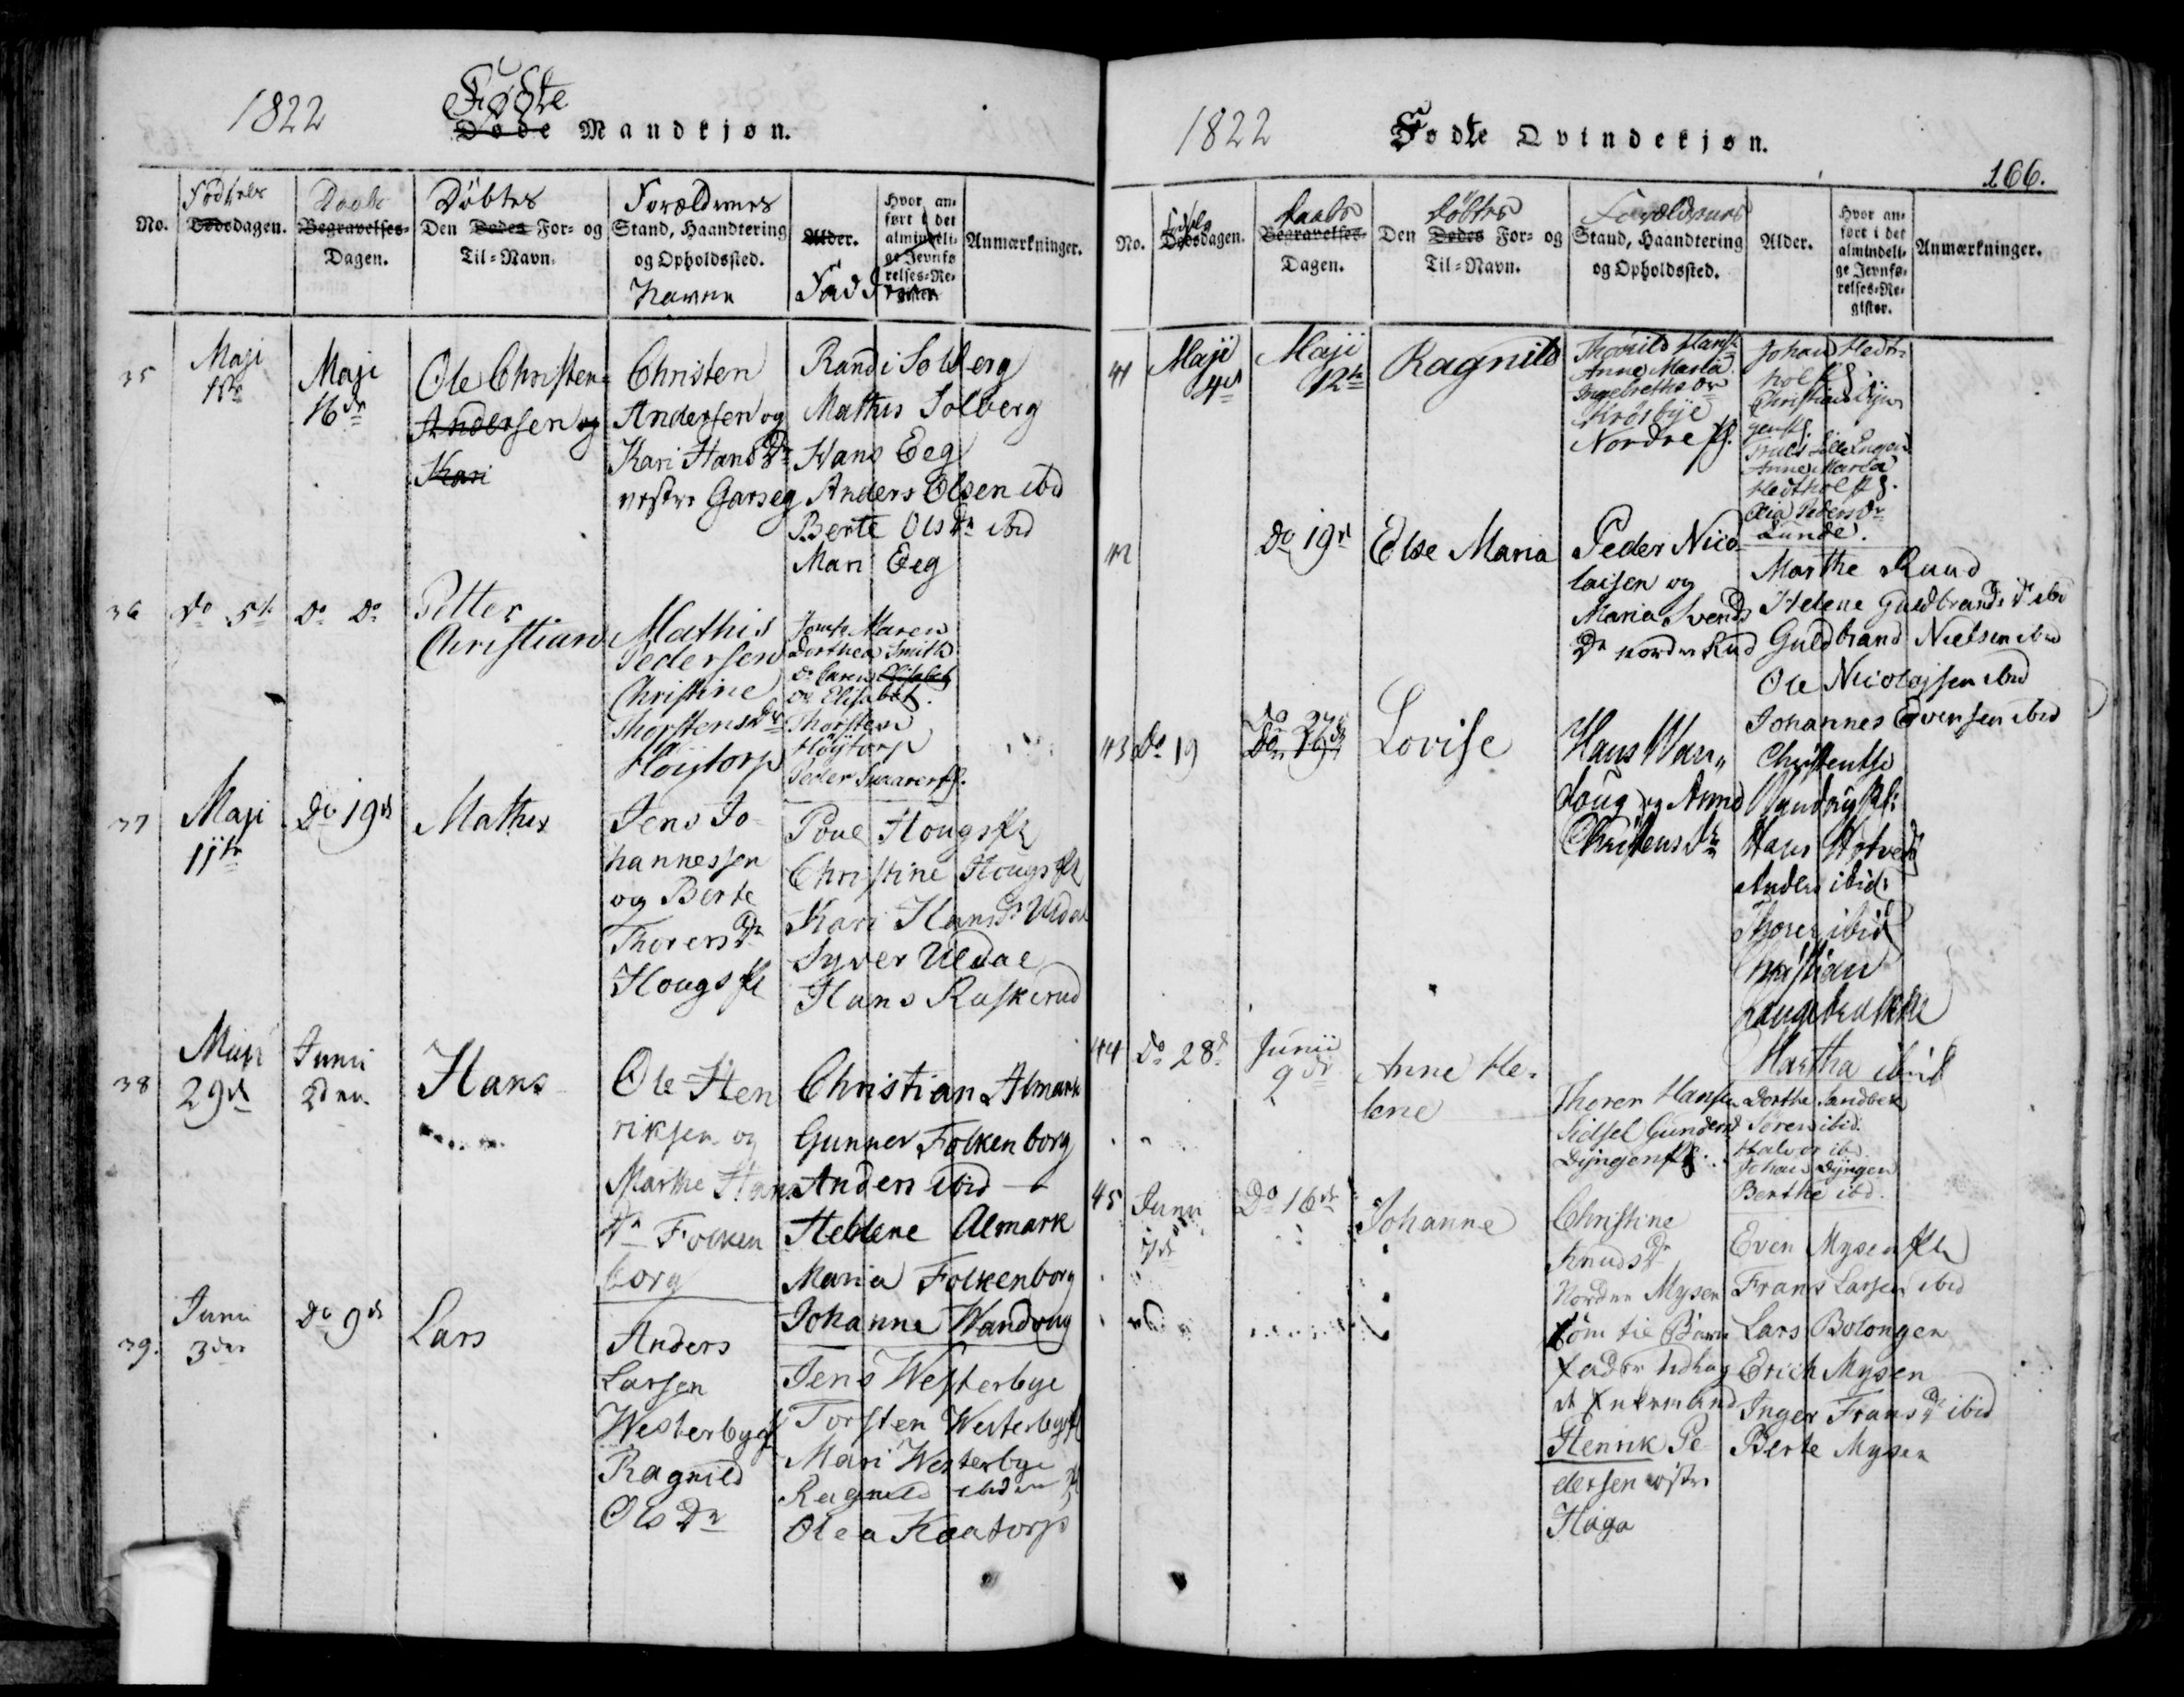 1822
Fødte
Døde Mandkjøn.
No.
Fødsels
Dødsdagen.
Daabs
Begravelses-
Dagen.
Døbtes
Den Dødes For- og
Til-Navn.
Forældrenes
Stand, Haandtering
og Opholdssted.
Navne
Alder.
Hvor an-
ført i det
almindeli-
ge Jevnfø
relses-Re-
gister.
Faddere
Anmærkninger.
35
Maji
1ste
Maji
16de
Ole Christen
Andersen og
Kari
Christen
Andersen og
Kari Hans Dr
vestre Garseg
Randi Solberg
Mathis Solberg
Hans Eeg
Anders Olsen ibd
Berte Ols Dr ibd
Mari Eeg
36
Do 5te
Do Do
Petter
Christian
Mathis
Pedersen
Christine
Thorstens Dr
Höijtorp
Jomfr Maren
Dorthea Smith
Do Caren Elisabet
Do Elisabet.
Thorsten
Höijtorp
Peder
37
Maji
11te
Do 19d
Mathis
Jens Jo-
hannessen
og Berte
Thorers Dr
Hougs
Poul Hougs
Christine Hougs
Kari Hans Dr Uldal
Syver Uldal
Hans Ruskerud
38
Maji
29d
Junii
2den
Hans
Ole Hen
riksen og
Marthe Hans
Dr Folken
borg
Christian Almark
Gunner Folkenborg
Anders ibid
Heldene Almark
Maria Folkenborg
Johanne Wandoug
39.
Junii
3die
Do 9d
Lars
Anders
Larsen
Westerbye
Ragnild
Ols Dr
Jens Westerbye
Torsten Westerbye
Mari Westerbye
Ragnild
Olea Kaatorp
1822
Fødte Qvindekjøn.
166.
No.
Fødsels
Dødsdagen.
Daabs
Begravelses-
Dagen.
Døbtes
Den Dødes For- og
Til-Navn.
Forældrenes
Stand, Haandtering
og Opholdssted.
Alder.
Hvor an-
ført i det
almindeli-
ge Jevnfø-
relses-Re-
gister.
Anmærkninger.
41
Maji
4d
Maji
12te
Ragnild
Anne Maria
Ingelreths Dr
Krosbye
Nordre
Johan
Christian
Anne Maria
Peders Dr
Lunde.
42
Do 19d
Else Maria
Peder Nico
laisen og
Maria Svends
Dr nordre Rud
Marthe Ruud
Helene Guldbrands Dr ibd
Guldbrand Nielsen ibid
Ole Nicolajsen ibid
Johannes Evensen ibid
43
Do 19
Do 27d
Do 19d
Lovise
Hans Wan„
doug og Anne
Christens Dr
Christentse
Wandoug
Hans
Anders ibid:
Thorer ibid
Christian
Langebrække
Martha ibid
44
Do 28d
Junii
9de
Anne He-
lene
Thorer Hansen
Sidsel Gunders
Dyngen
Dorthe Sandbek
Søren ibid.
Halvor ib.
Johan Dyngen
Berthe ibd.
45
Junii
7de
Do 16d
Johanne
Christine
Knuds Dr
Nordre Mysen
som til Barne
fader udlag
de Enkemand
Henrik Pe
dersen østre
Haga
Even Mysen
Frans Larsen ibid
Lars Bolongen
Erich Mysen
Inger Frans Dr ibid
Berte Mysen